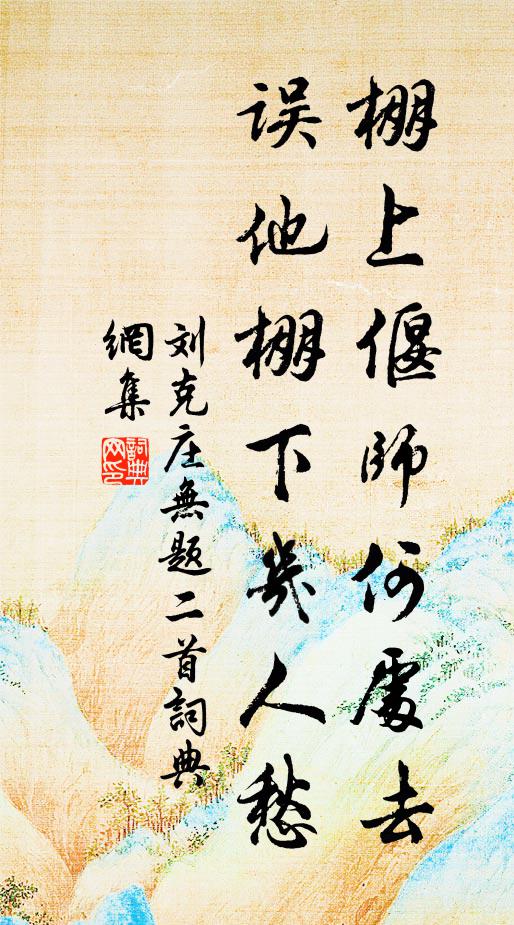 棚上偃師何處去
误他棚下幾人愁
刘克庄無题二首詞典
網集
詞典
网印